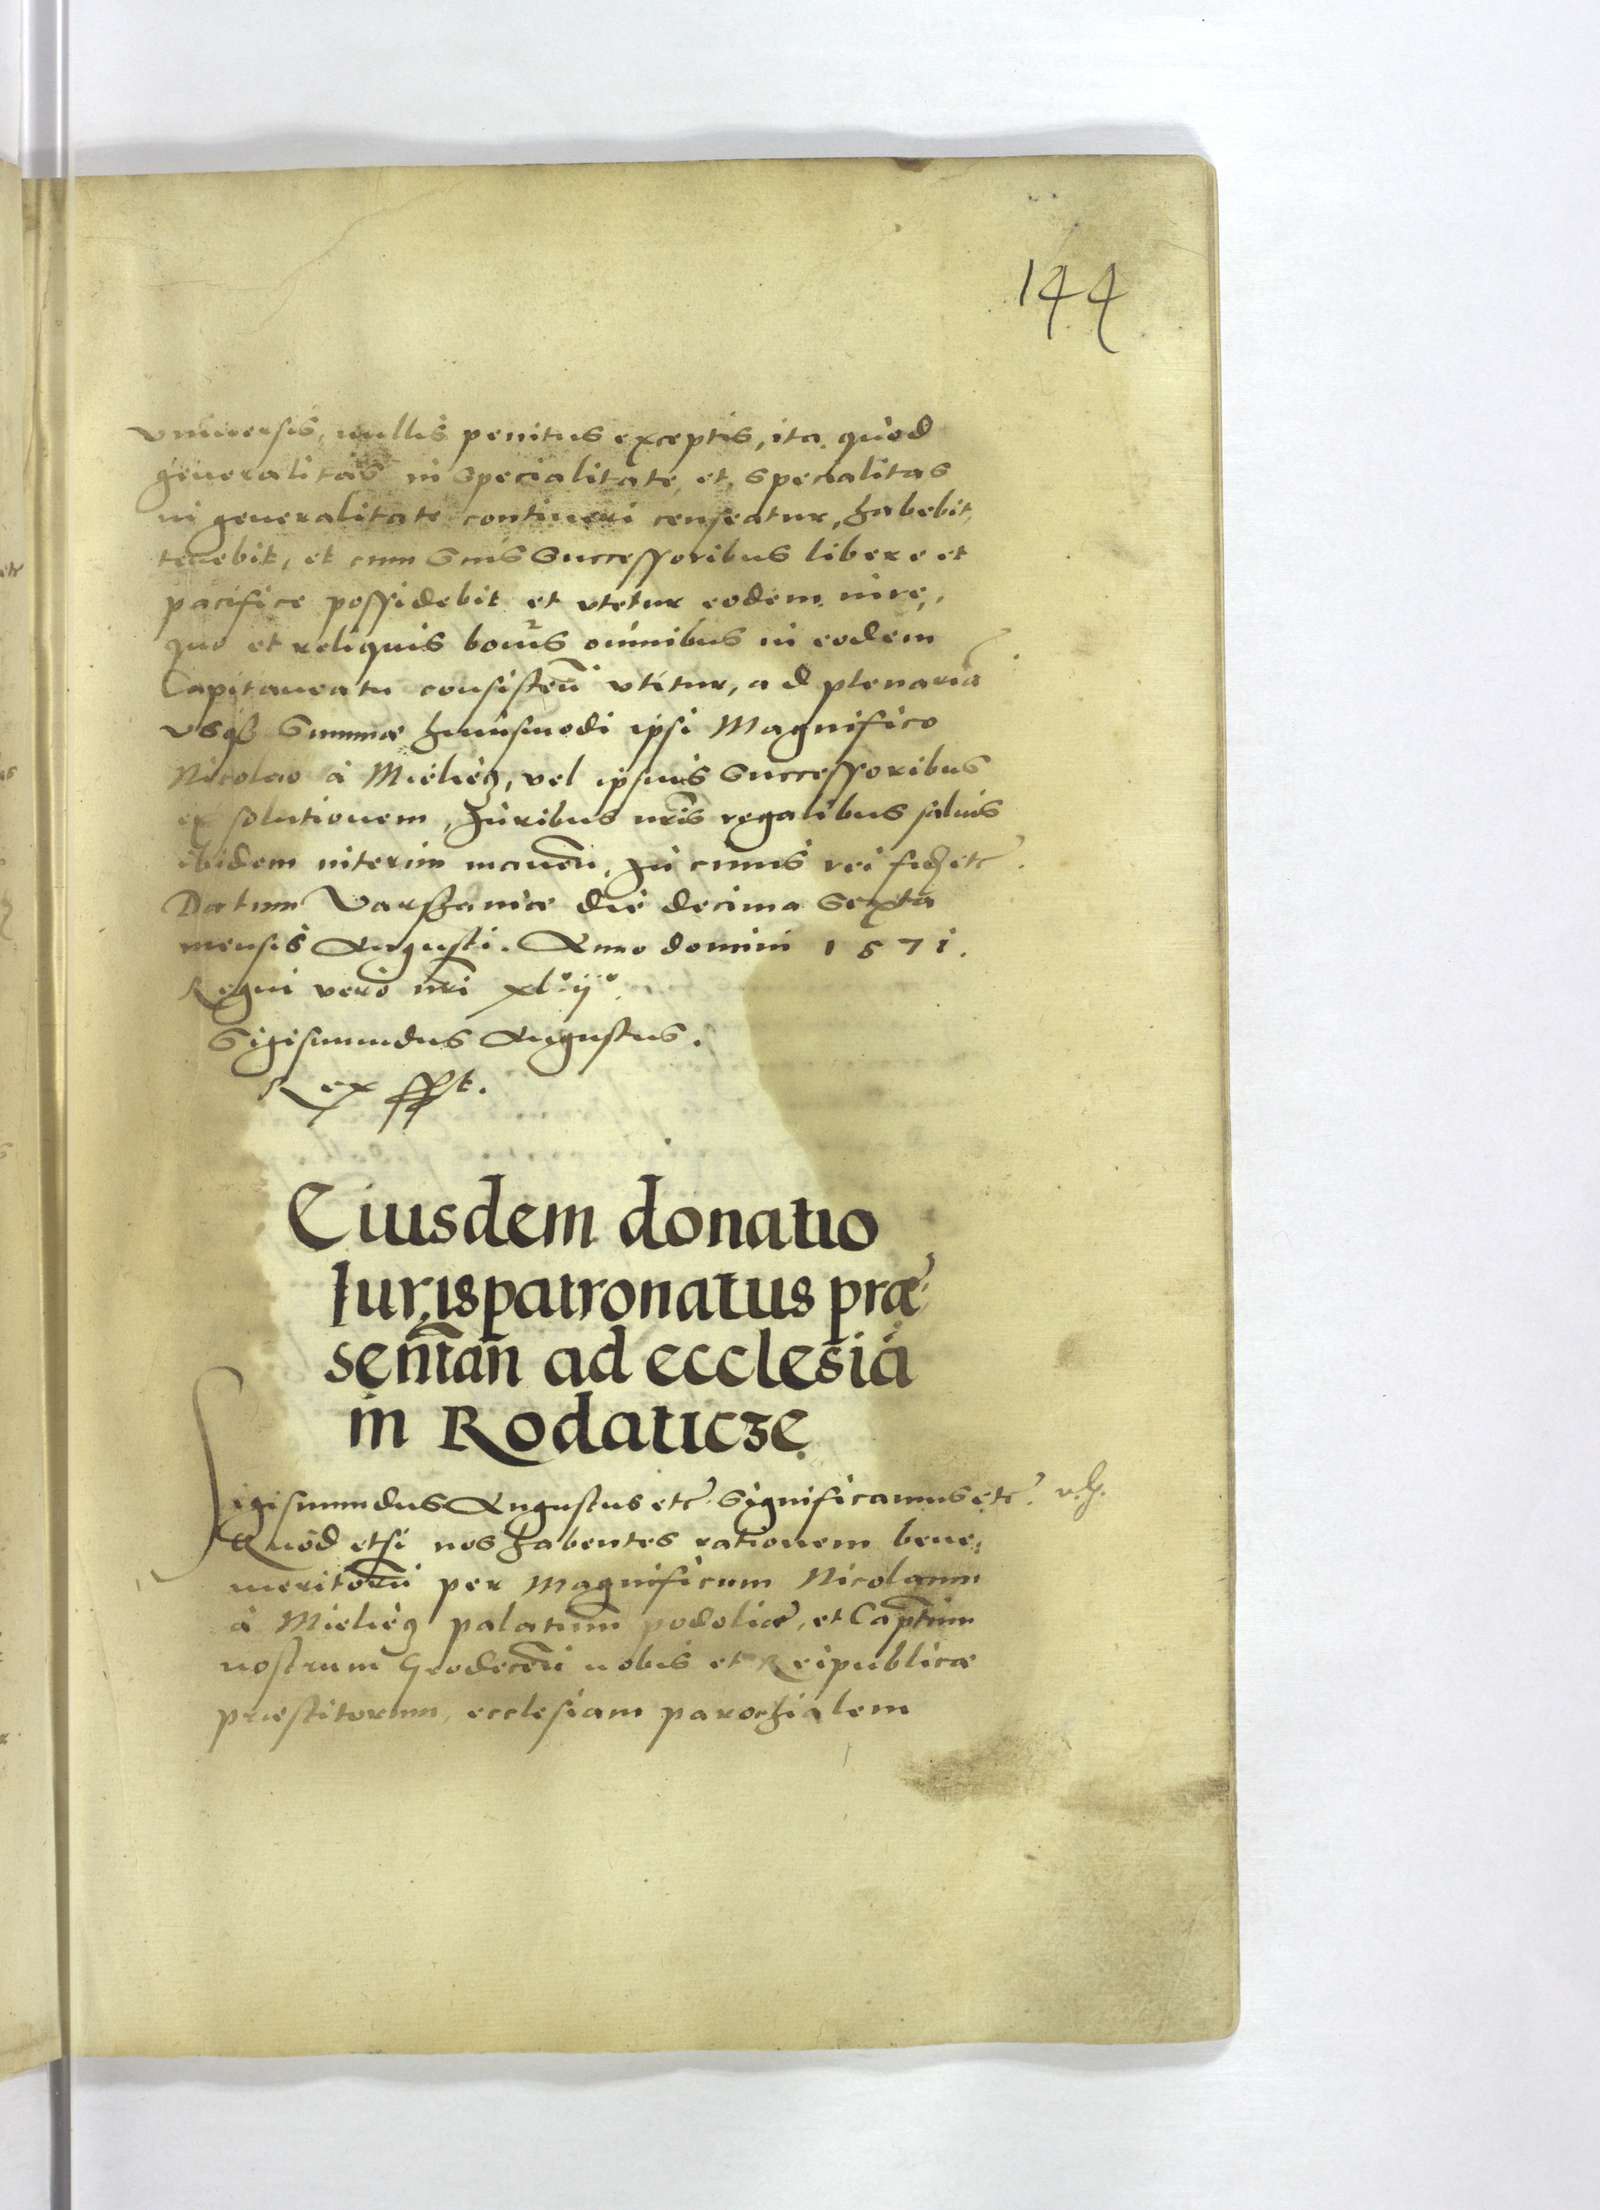 144
vniuersis, nullis penitus exceptis, ita quòd
generalitas in specialitate, et specialitas
in generalitate contineri censeatur, habebit,
tenebit, et cum suis successoribus libere et
pacifice possidebit et vtetur eodem iure,
quo et reliquis bonis omnibus in eodem
Capitaneatu consisteñ vtitur, ad plenariã
vsq̃ summæ huiusmodi ipsi Magnifico
Nicolao à Mielięcz, vel ipsius successoribus
exsolutionem, Iuribus nr̃is regalibus saluis
ibidem interim maneñ, In cuius rei fidem etc.
Datum Varszauiæ die decima sexta
mensis Augusti. Anno domini 1571.
Regni verò nr̃i xl°ij°.
Sigismundus Augustus.
Rex sspt.
Eiusdem donatio
Iurispatronatus præ
señtan ad ecclesiã
in Rodaticze
Sigismundus Augustus etc. Significamus etc. v. h.
Quòd etsi nos habentes rationem bene
meritorũ per Magnificum Nicolaum
à Mielięcz palatinũ podoliæ, et Captñum
nostrum Grodeceñ nobis et Reipublicæ
præstitorum, ecclesiam parochialem